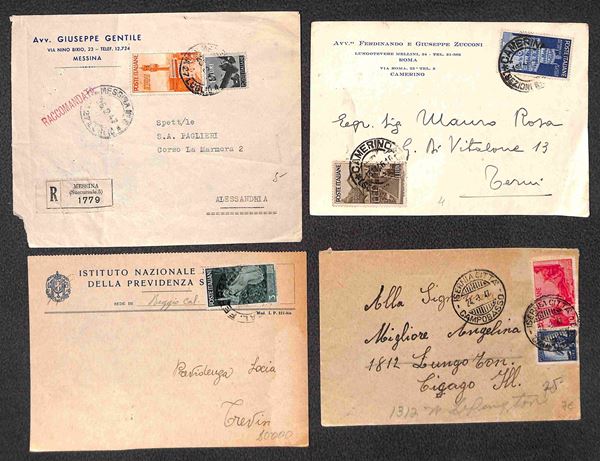 Avv. GIUSEPPE GENTILE
VIA NINO BIXIO, 23 - TELEF. 12.724
MESSINA
POSTE ITALIANE
RACCOMANDATA
MESSINA
Spett/le
S.A. PAGLIERI
Corso La Marmora 2
5-
R
MESSINA
(Succursale 5)
1779
ALESSANDRIA
Avv.ti FERDINANDO E GIUSEPPE ZUCCONI
LUNGOTEVERE MELLINI, 24 - TEL.
ROMA
VIA ROMA, TEL.
CAMERINO
CAMERINO
POSTE ITALIANE
Egr. Sig Mauro Rosa
G. Di Vitalone 13
Terni
CAMERINO
POSTE ITALIANE
4
ISTITUTO NAZIONALE
DELLA PREVIDENZA S
SEDE DI Reggio Cal.
POSTE ITALIANE
Mod. I. P.
Previdenza Socia
Trevin
10000
ISERNIA CITTA
CAMPOBASSO
ISERNIA CITTA
Alla Sig
Migliore Angelina
1812 Lungo Ton.
Cigago Ill.
25-
1312 W Lexington